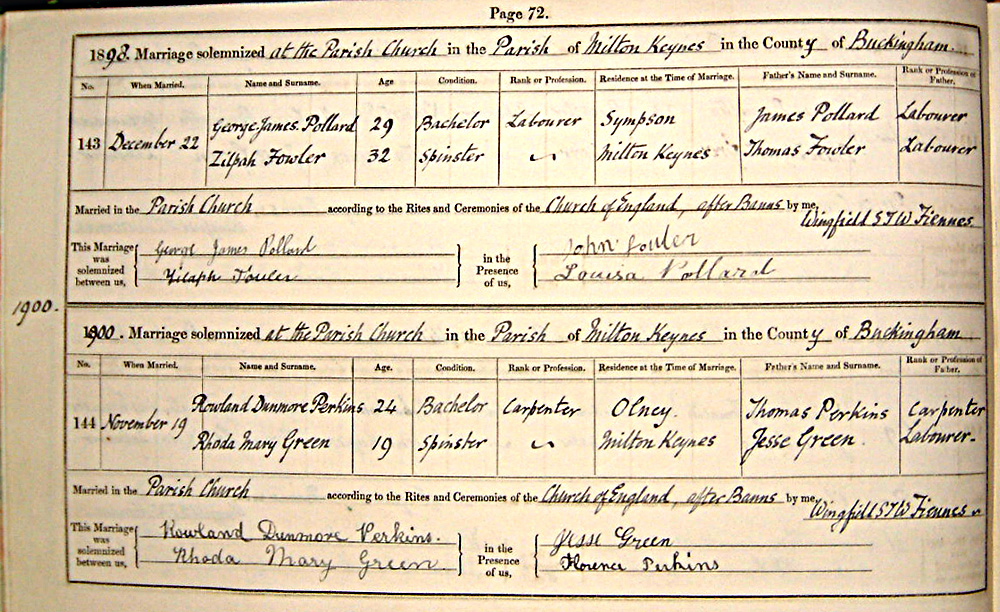 Page 72.
1898. Marriage solemnized at the Parish Church in the Parish of Milton Keynes in the County of Buckingham.
No. When Married. Name and Surname. Age Condition. Rank or Profession. Residence at the Time of Marriage. Father's Name and Surname. Rank or Profession of Father.
George James Pollard 29 Bachelor Labourer Sympson James Pollard Labourer
143 December 22
Zilpah Fowler 32 Spinster Milton Keynes Thomas Fowler Labourer
Married in the Parish Church according to the Rites and Ceremonies of the Church of England, after Banns by me,
Wingfield S T W Fiennes.
This Marriage was solemnized between us, George James Pollard in the Presence of us, John Fowler
Zilaph Fowler Louisa Pollard
1900.
1900. Marriage solemnized at the Parish Church in the Parish of Milton Keynes in the County of Buckingham
No. When Married. Name and Surname. Age. Condition. Rank or Profession. Residence at the Time of Marriage. Father's Name and Surname. Rank or Profession of Father.
Rowland Dunmore Perkins 24 Bachelor Carpenter Olney. Thomas Perkins Carpenter
144 November 19
Rhoda Mary Green 19 Spinster Milton Keynes Jesse Green. Labourer.
Married in the Parish Church according to the Rites and Ceremonies of the Church of England, after Banns by me,
Wingfield S T W Fiennes
This Marriage was solemnized between us, Rowland Dunmore Perkins. in the Presence of us, Jesse Green
Rhoda Mary Green Florence Perkins